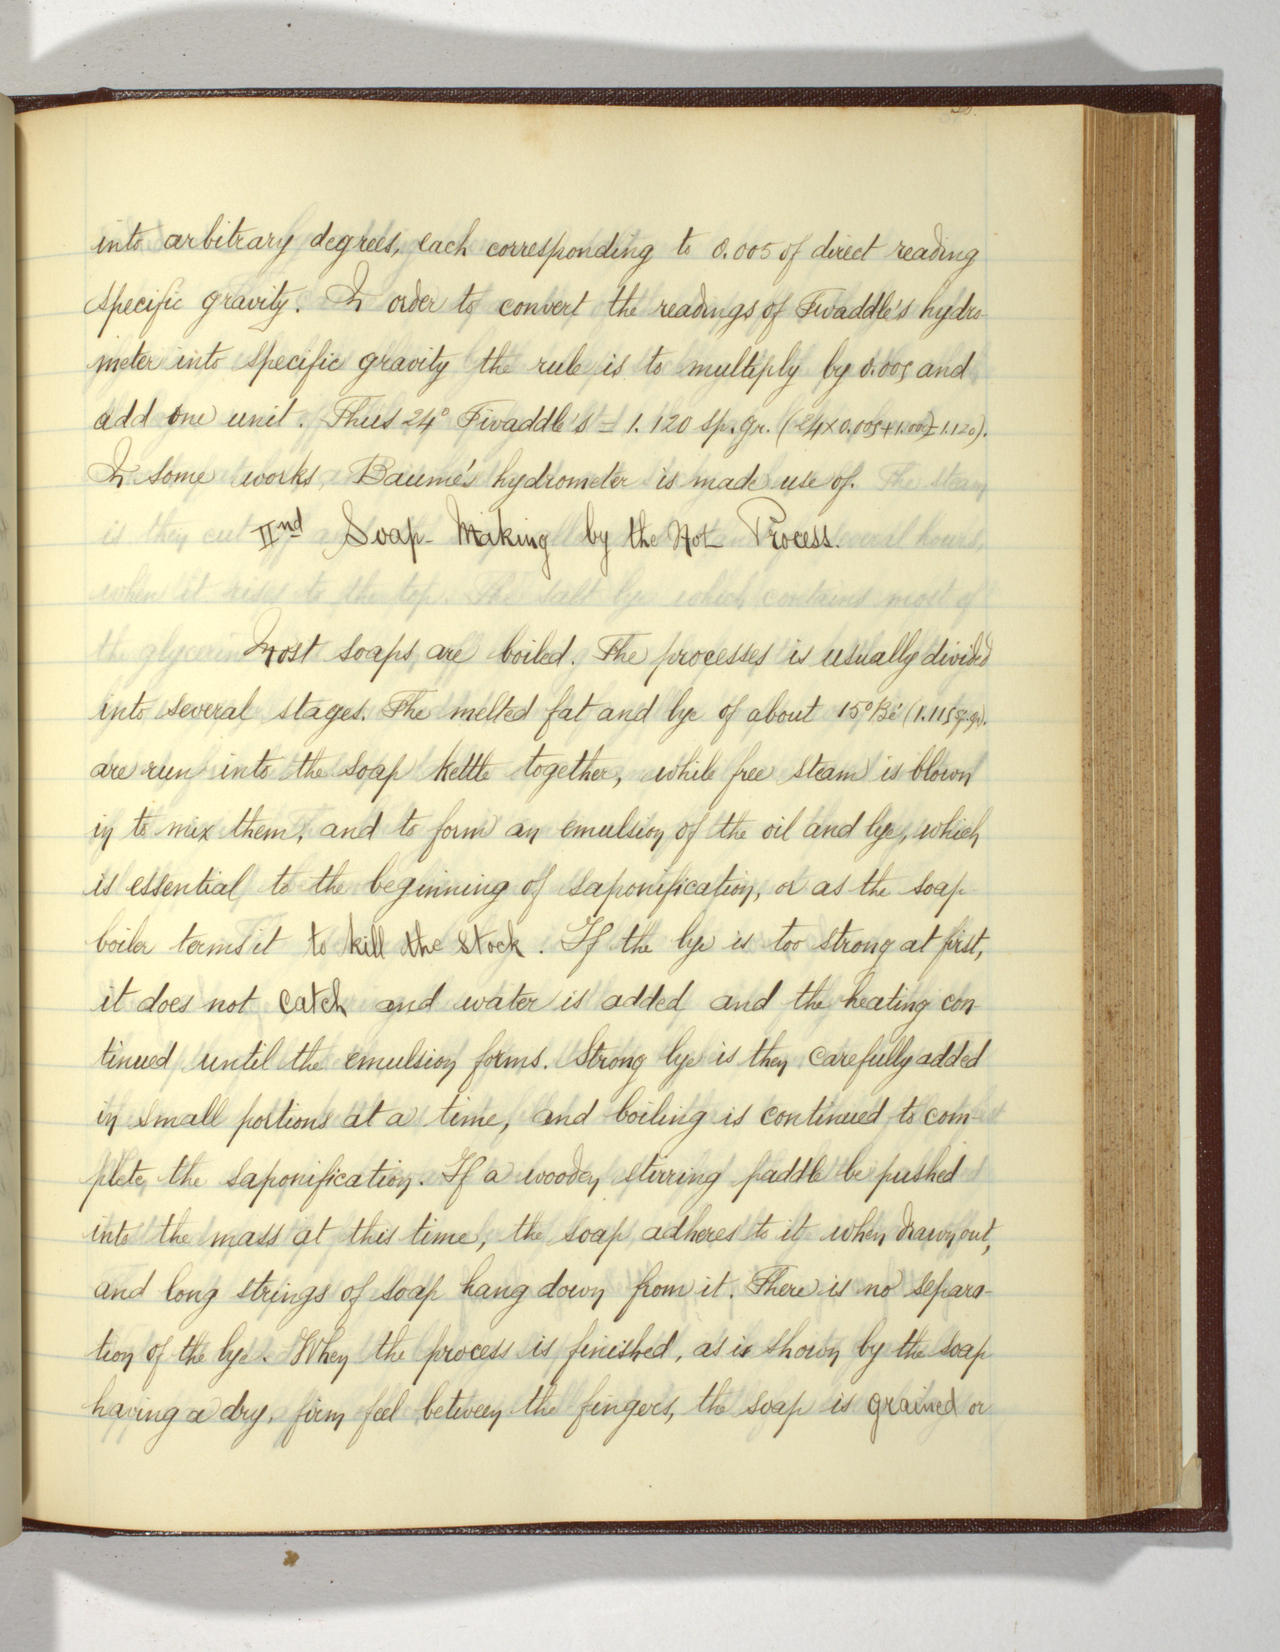 into arbitrary degrees, each corresponding to 0.005 of direct reading
specific gravity. In order to convert the readings of Twaddle's hydro-
meter into specific gravity the rule is to multiply by 0.005 and
add one unit. Thus 24° Twaddle's = 1.120 sp. gr. (24×0.005+1.00=1.120).
In some works, Baumé's hydrometer is made use of.
IInd Soap-Making by the Hot Process.
Most soaps are boiled. The processes is usually divided
into several stages. The melted fat and lye of about 15° Bé (1.115 sp.gr).
are run into the soap kettle together, while free steam is blown
in to mix them, and to form an emulsion of the oil and lye, which
is essential to the beginning of saponification, or as the soap
boiler terms it to kill the stock. If the lye is too strong at first,
it does not catch and water is added and the heating con
tinued until the emulsion forms. Strong lye is then carefully added
in small portions at a time, and boiling is continued to com-
plete the saponification. If a wooden stirring paddle be pushed
into the mass at this time, the soap adheres to it when drawn out,
and long strings of soap hang down from it. There is no separa-
tion of the lye. When the process is finished, as is shown by the soap
having a dry, firm feel between the fingers, the soap is grained or